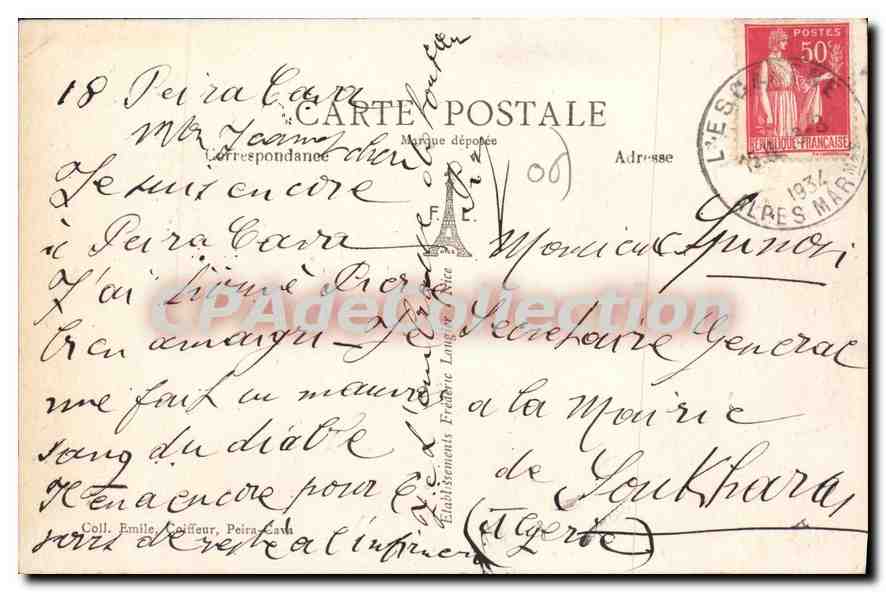 18 Peira Cava
CARTE POSTALE
Marque déposée
Correspondance
Adresse
mon cher
Je suis encore
à Peira Cava
J'ai trouvé Pierre
bien amaigri - Je
me fait un mauvais
sang du diable
Il en a encore pour 6
jours de reste a l'infirmerie
Je l'embrasse
F. E.
Etablissements Frédéric Laugier, Nice
Coll. Emile, Coiffeur, Peira-Cava
06
Monsieur Spinosi
Secretaire General
a la Mairie
de Soukharas
(Algerie)
POSTES
50c
REPUBLIQUE FRANÇAISE
L'ESCARENE
1934
ALPES MARMES
CPAdeCollection